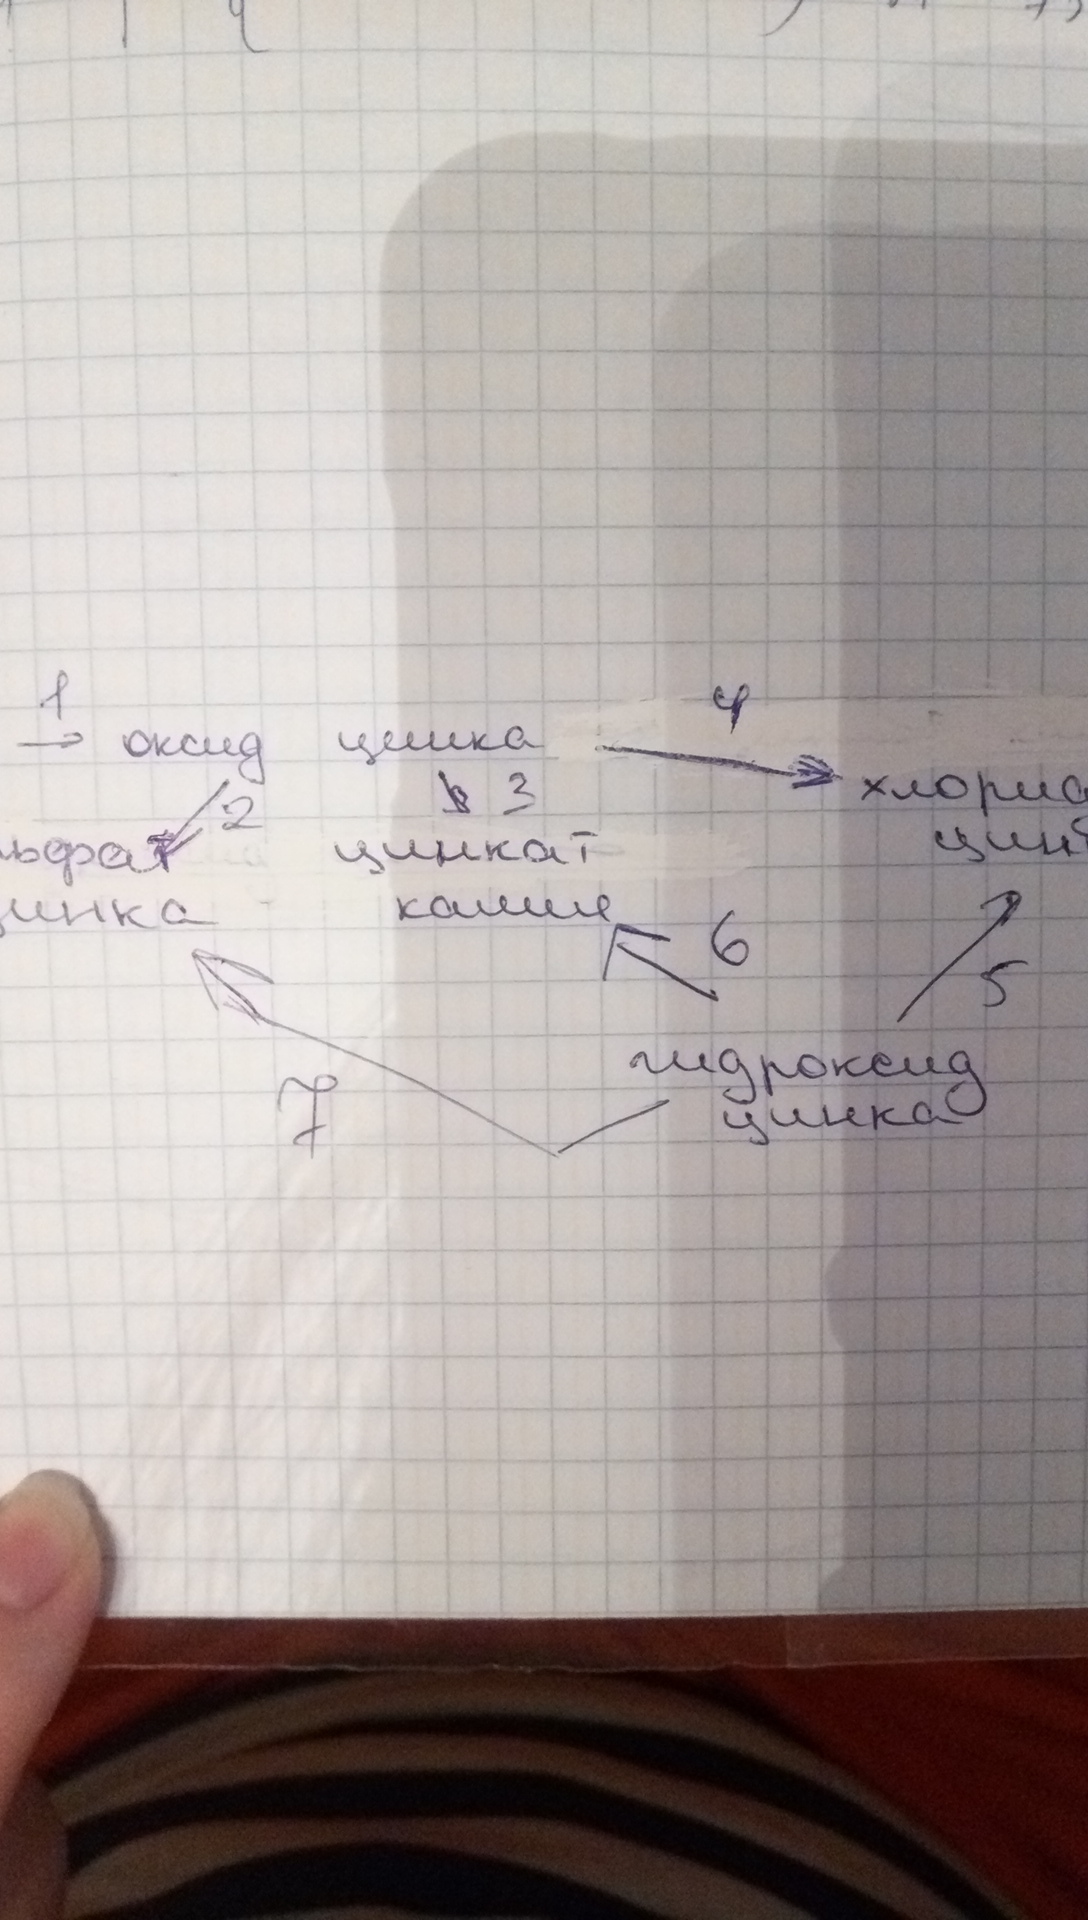 1 4
→ оксид цинка → хлорид
2 3
льфат цинкат цинк
цинка калия
6
5
гидроксид
7 цинка